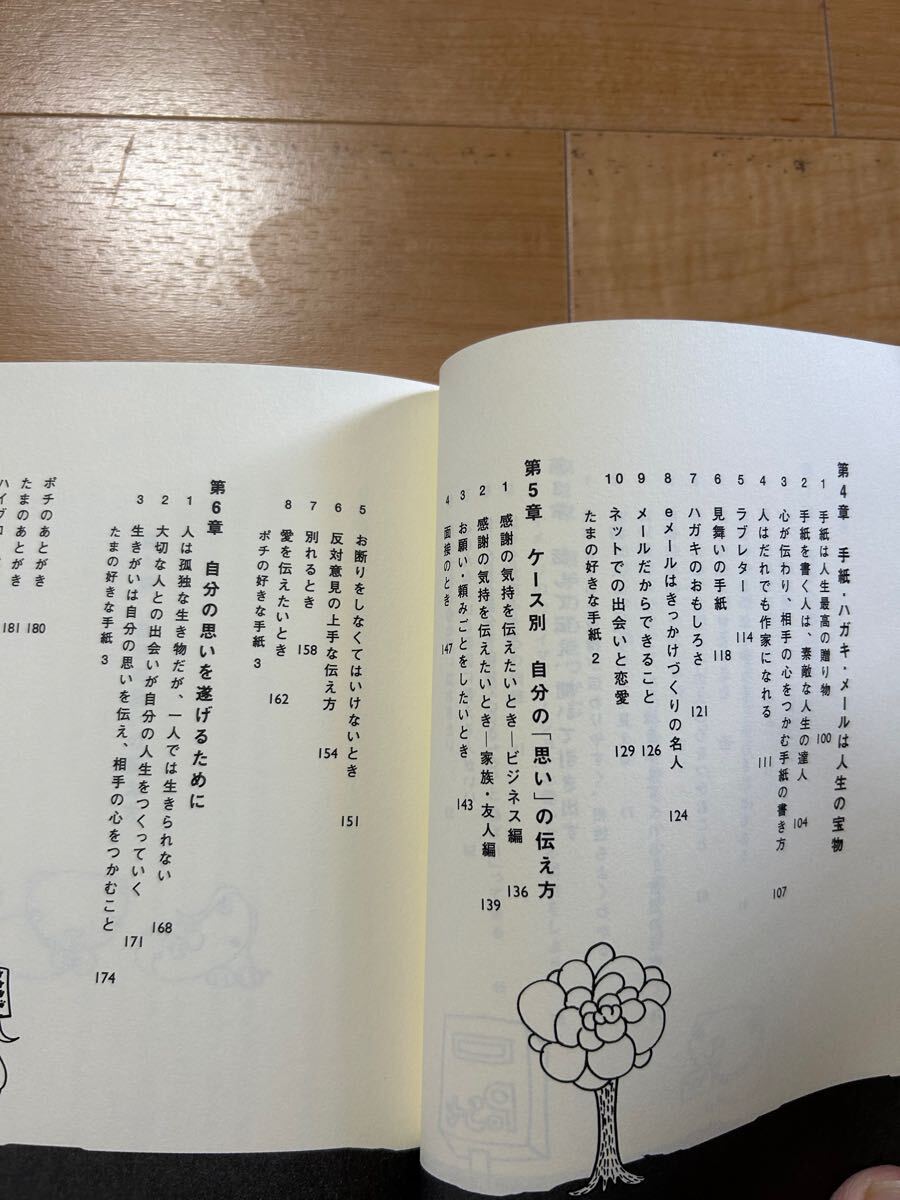 第4章 手紙・ハガキ・メールは人生の宝物
1 手紙は人生最高の贈り物 100
2 手紙を書く人は、素敵な人生の達人 104
3 心が伝わり、相手の心をつかむ手紙の書き方 107
4 人はだれでも作家になれる 111
5 ラブレター 114
6 見舞いの手紙 118
7 ハガキのおもしろさ 121
8 eメールはきっかけづくりの名人 124
9 メールだからできること 126
10 ネットでの出会いと恋愛 129
たまの好きな手紙 2
第5章 ケース別 自分の「思い」の伝え方
1 感謝の気持を伝えたいとき―ビジネス編 136
2 感謝の気持を伝えたいとき―家族・友人編 139
3 お願い・頼みごとをしたいとき 143
4 面接のとき 147
5 お断りをしなくてはいけないとき 151
6 反対意見の上手な伝え方 154
7 別れるとき 158
8 愛を伝えたいとき 162
ポチの好きな手紙 3
第6章 自分の思いを遂げるために
1 人は孤独な生き物だが、一人では生きられない 168
2 大切な人との出会いが自分の人生をつくっていく 171
3 生きがいは自分の思いを伝え、相手の心をつかむこと 174
たまの好きな手紙 3
ポチのあとがき 180
たまのあとがき 181